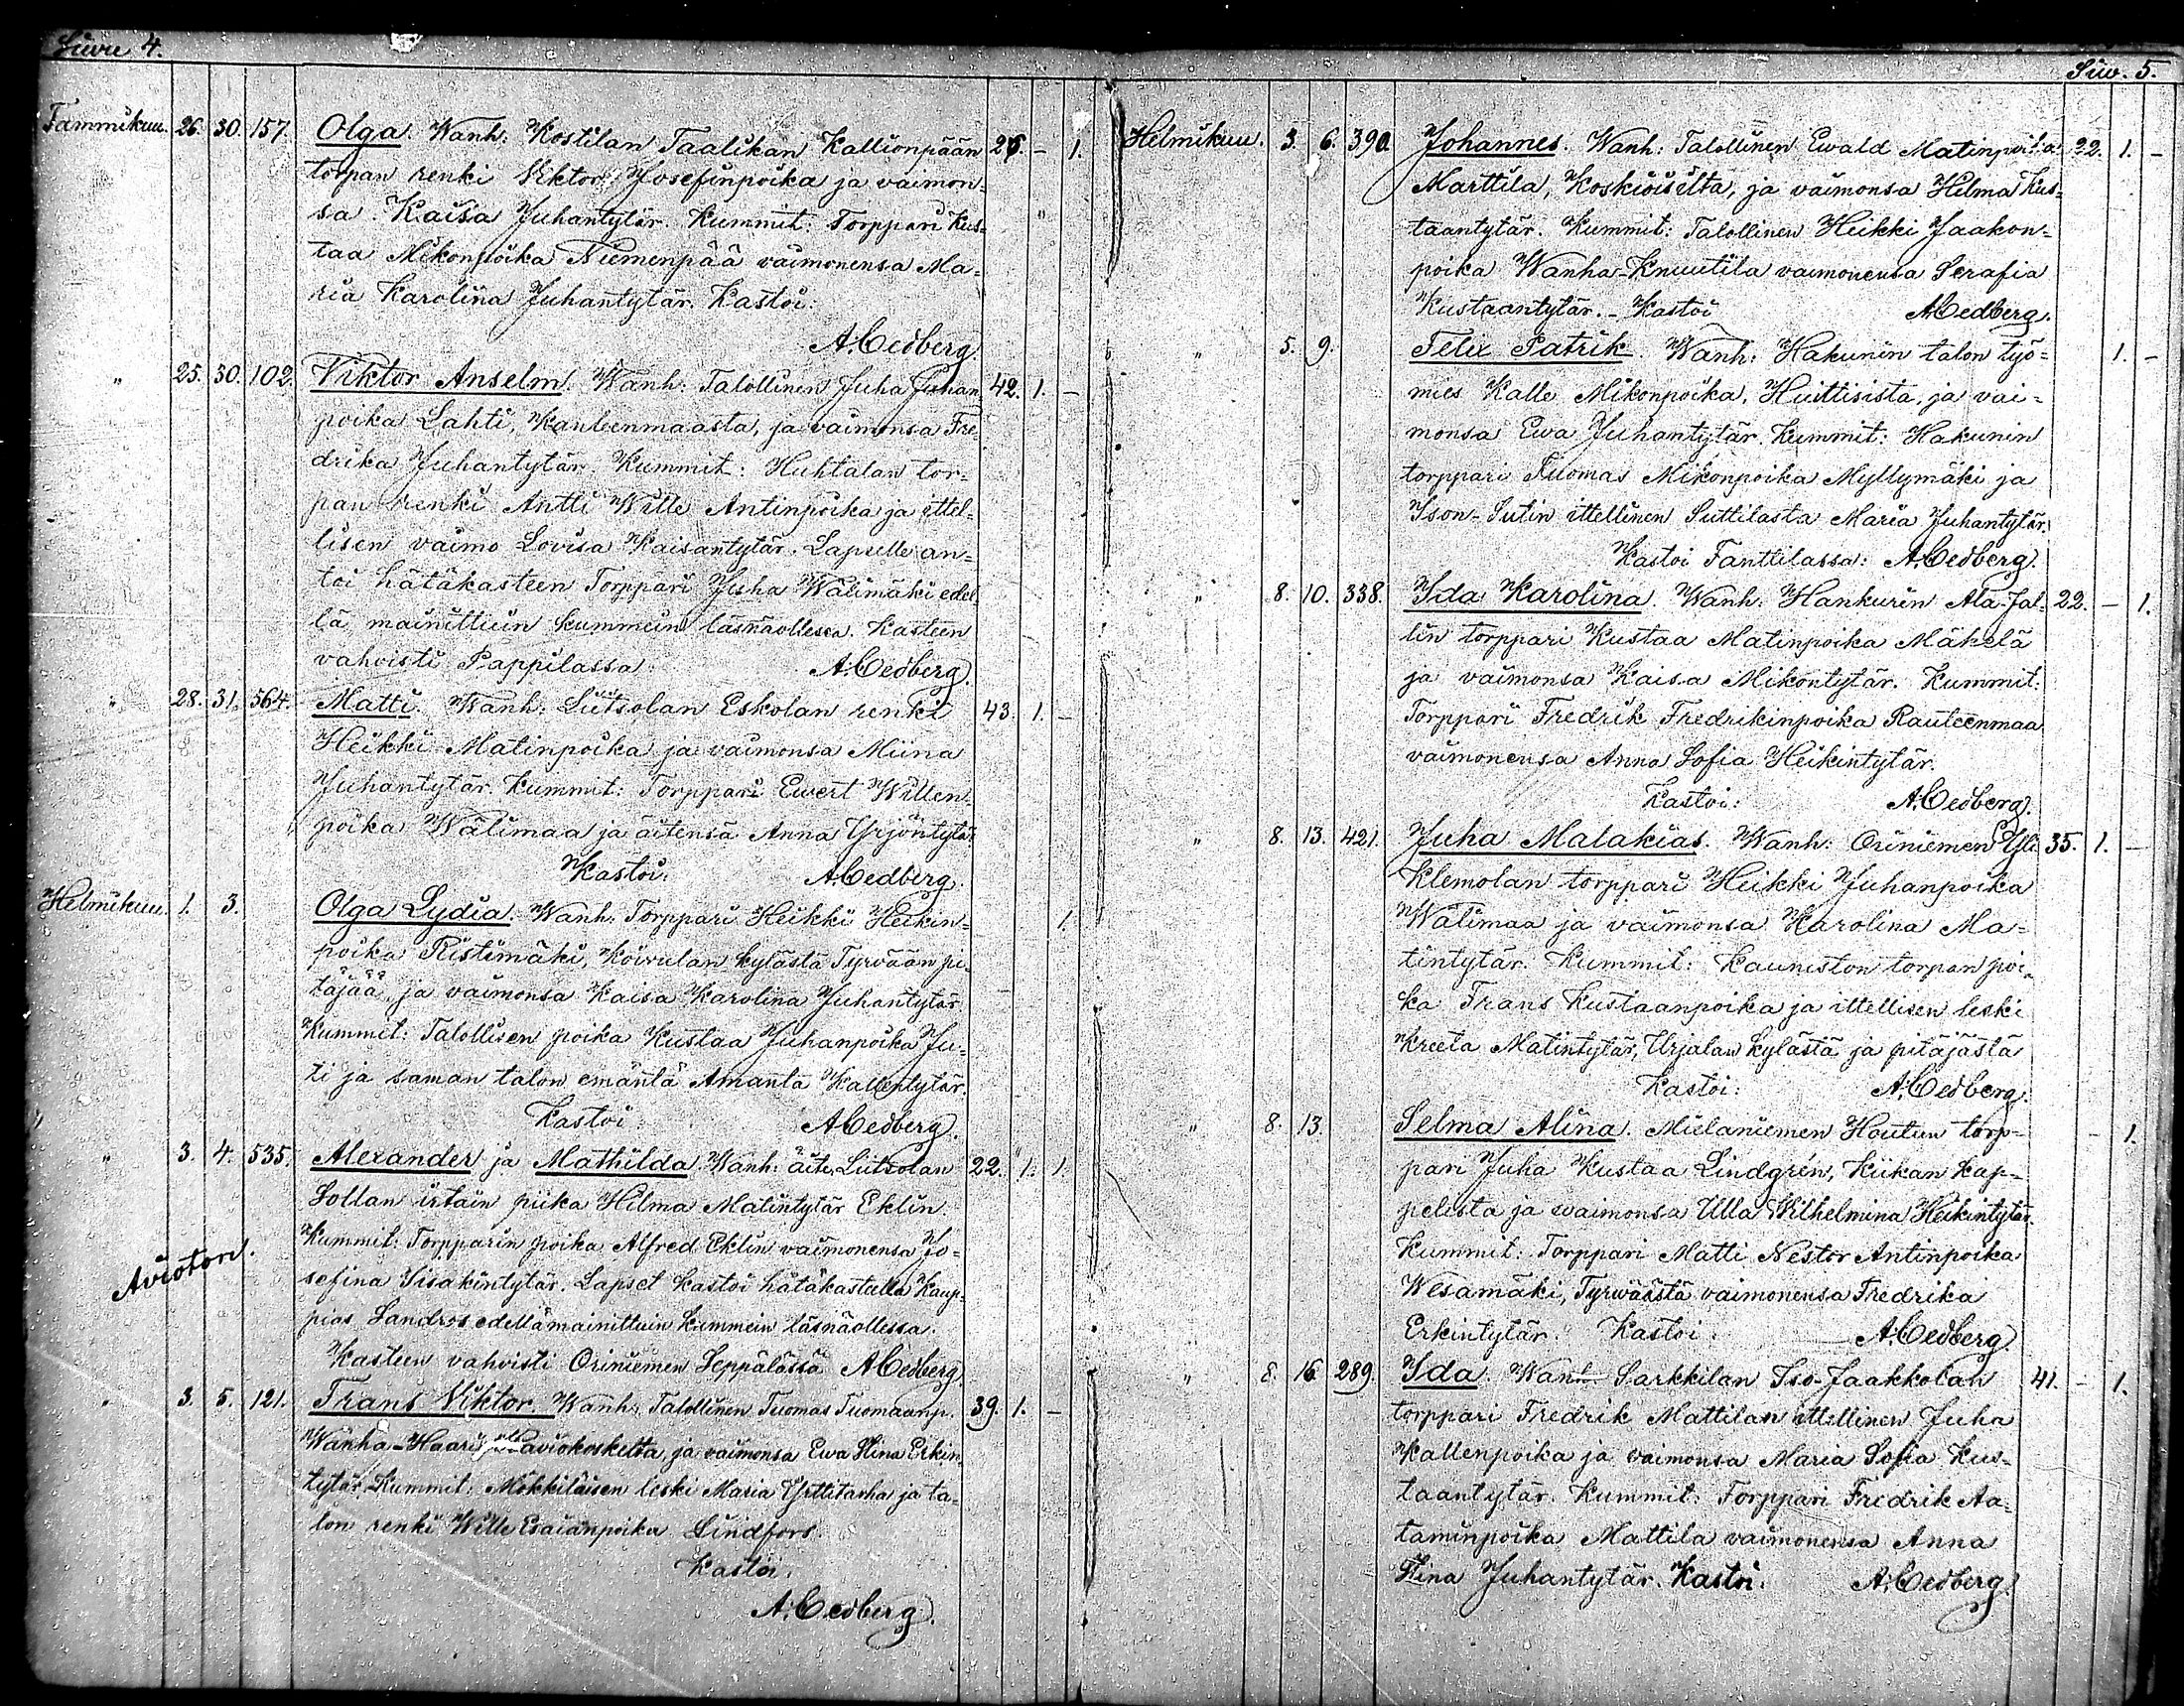 Sivu 4.
Tammikuu. 26. 30. 157. Olga. Wanh: Kostilan Taalikan Kallionpään 26. - 1.
torpan renki Viktor Josefinpoika ja vaimon=
sa Kaisa Juhantytär. Kummit: Torppari Kus=
taa Mikonpoika Niemenpää vaimonensa Ma=
ria Karolina Juhantytär. Kastoi:
A. Cedberg.
" 25. 30. 102. Viktor Anselm. Wanh: Talollinen Juha Juhan 42. 1. -
poika Lahti, Kanteenmaasta, ja vaimonsa Fre=
drika Juhantytär. Kummit: Huhtalan tor=
pan renki Antti Wille Antinpoika ja ittel=
lisen vaimo Lovisa Kaisantytär. Lapselle an=
toi hätäkasteen Torppari Juha Wälimäki edel
lä mainittuin kummein läsnäollessa. Kasteen
vahvisti Pappilassa A. Cedberg.
" 28. 31. 564. Matti. Wanh: Liitsolan Eskolan renki 43. 1. -
Heikki Matinpoika ja vaimonsa Miina
Juhantytär. Kummit: Torppari Ewert Willen=
poika Wälimaa ja äitensä Anna Yrjöntytär.
Kastoi: A. Cedberg.
Helmikuu. 1. 3. Olga Lydia. Wanh: Torppari Heikki Heikin= 1.
poika Ristimäki, Koivulan kylästä Tyrvään pi=
täjää, ja vaimonsa Kaisa Karolina Juhantytär
Kummit: Talollisen poika Kustaa Juhanpoika Ju=
ti ja saman talon emäntä Amanta Kallentytär.
Kastoi A. Cedberg.
" 3. 4. 535. Alexander ja Mathilda. Wanh: äite, Liitsolan 22. 1. 1.
Sollan irtain piika Hilma Matintytär Eklin.
Kummit: Torpparin poika Alfred Eklin vaimonensa Jo=
sefina Iisakintytär. Lapset kastoi hätäkasteella Kaup=
pias Sandros edellämainittuin kummein läsnäollessa.
Kasteen vahvisti Oriniemen Seppälässä A. Cedberg.
Avioton.
" 3. 5. 121. Frans Viktor. Wanh: Talollinen Tuomas Tuomaanp. 39. 1. -
Wanha-Haari aviokoskelta, ja vaimonsa Ewa Stina Erkin=
tytär. Kummit: Mökkiläisen leski Maria Yrttitarha ja ta=
lon renki Wille Esaianpoika Lindfors.
Kastoi.
A. Cedberg.
Siv. 5.
Helmikuu. 3. 6. 390. Johannes. Wanh: Talollinen Ewald Matinpoika 22. 1. -
Marttila, Koskioisilta, ja vaimonsa Hilma Kus=
taantytär. Kummit: Talollinen Heikki Jaakon=
poika Wanha-Knuutila vaimonensa Serafia
Kustaantytär. - Kastoi A. Cedberg.
" 5. 9. Felix Patrik. Wanh: Hakunin talon työ= 1. -
mies Kalle Mikonpoika, Huittisista, ja vai=
monsa Ewa Juhantytär. Kummit: Hakunin
torppari Tuomas Mikonpoika Myllymäki ja
Ison-Sutin ittellinen Suttilasta Maria Juhantytär.
Kastoi Fanttilassa: A. Cedberg.
" 8. 10. 338. Ida Karolina. Wanh: Hankurin Ala-Jal= 22. - 1.
lin torppari Kustaa Matinpoika Mäkelä
ja vaimonsa Kaisa Mikontytär. Kummit:
Torppari Fredrik Fredrikinpoika Rauteenmaa
vaimonensa Anna Sofia Heikintytär.
Kastoi: A. Cedberg.
" 8. 13. 421. Juha Malakias. Wanh: Oriniemen Yli 35. 1. -
Klemolan torppari Heikki Juhanpoika
Wälimaa ja vaimonsa Karolina Ma=
tintytär. Kummit: Kauniston torpan poi=
ka Frans Kustaanpoika ja ittellisen leski
Kreeta Matintytär, Urjalan kylästä ja pitäjästä
Kastoi: A. Cedberg.
" 8. 13. Selma Alina. Mielaniemen Houtun torp= - 1.
pari Juha Kustaa Lindgrén, Kiikan kap=
pelista ja vaimonsa Ulla Wilhelmina Heikintytär.
Kummit: Torppari Matti Nestor Antinpoika
Wesamäki, Tyrväästä vaimonensa Fredrika
Erkintytär. Kastoi: A. Cedberg
" 8. 16. 289. Ida. Wanh Sarkkilan Iso-Jaakkolan 41. - 1.
torppari Fredrik Mattilan ittellinen Juha
Kallenpoika ja vaimonsa Maria Sofia Kus=
taantytär. Kummit: Torppari Fredrik Aa=
taminpoika Mattila vaimonensa Anna
Stina Juhantytär. Kastoi. A. Cedberg.